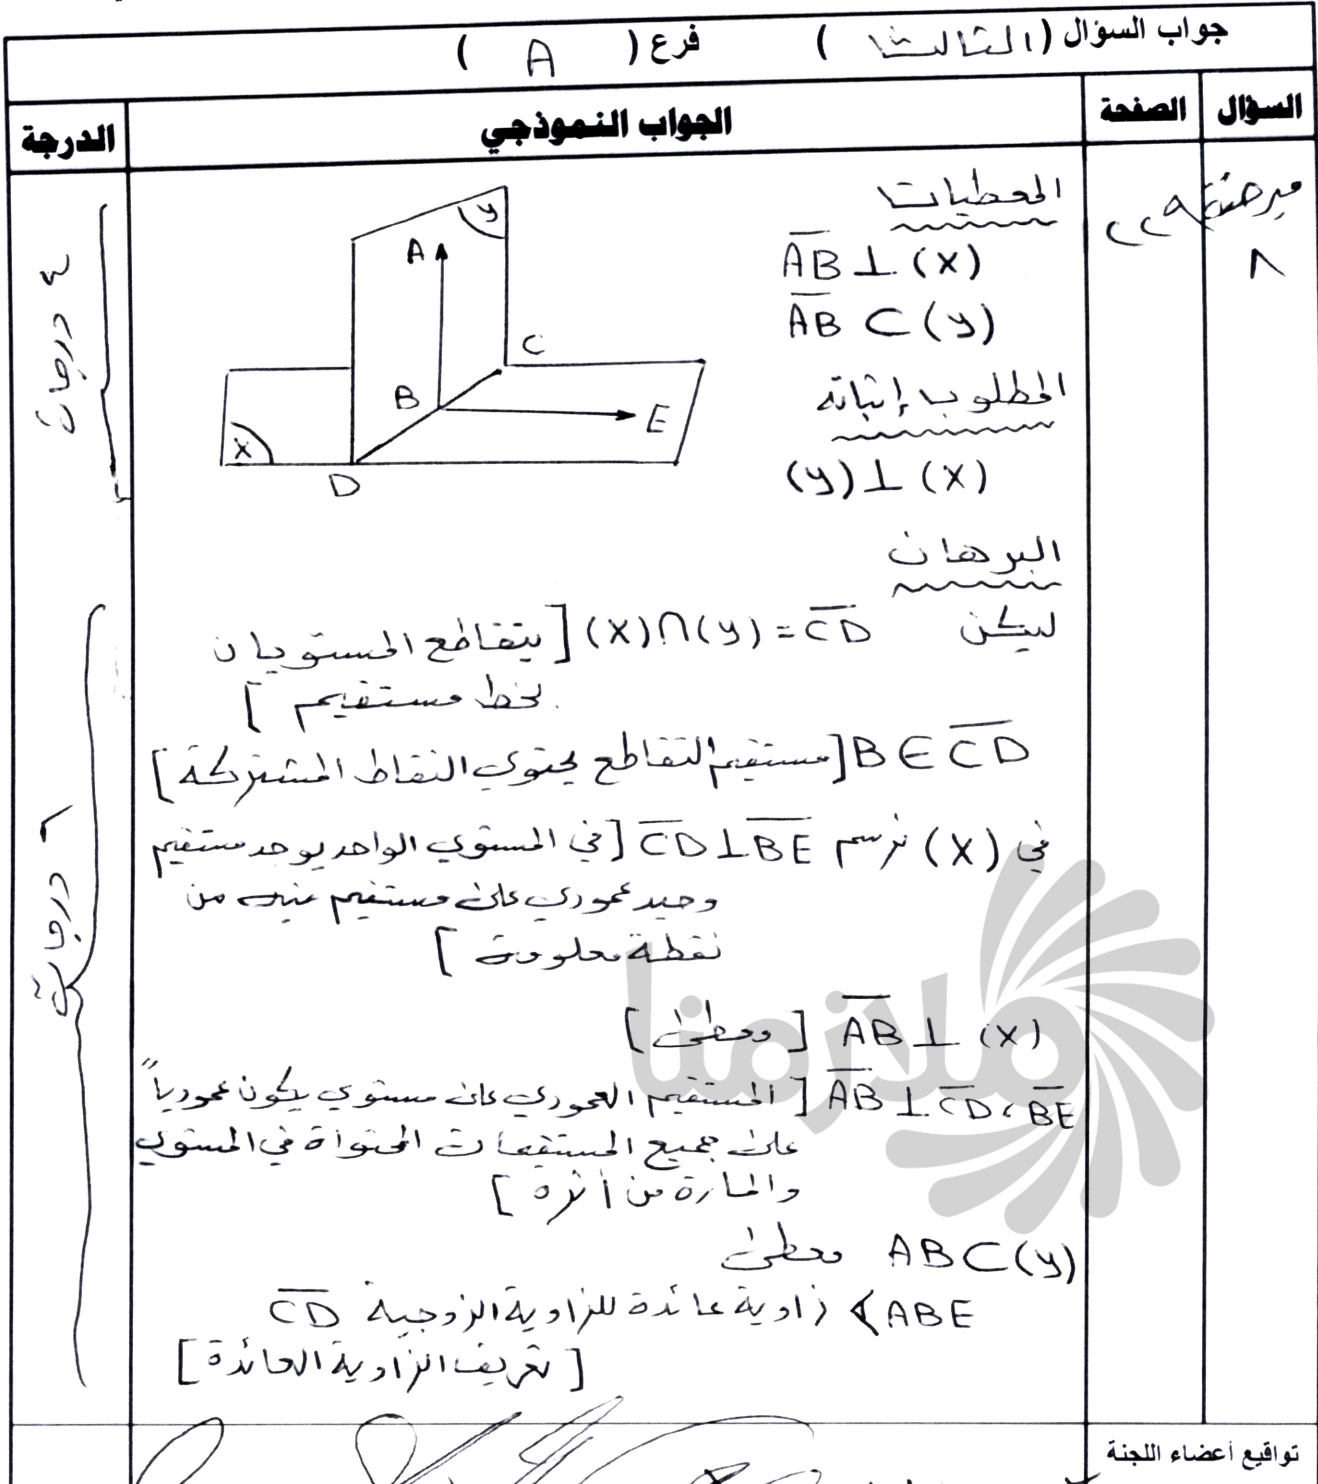 جواب السؤال ( الثالث ) فرع ( A )
السؤال الصفحة الجواب النموذجي الدرجة
مبرهنة ٨
٢٢٩
المعطيات
AB ⊥ (X)
AB ⊂ (Y)
المطلوب إثباته
(Y) ⊥ (X)
A
y
C
B
E
x
D
٤ درجات
البرهان
ليكن (X)∩(Y) = CD [ يتقاطع المستويان
بخط مستقيم ]
B ∈ CD [ مستقيم التقاطع يحتوي النقاط المشتركة ]
في (X) نرسم CD ⊥ BE [ في المستوي الواحد يوجد مستقيم
وحيد عمودي على مستقيم فيه من
نقطة معلومة ]
AB ⊥ (X) [ معطى ]
AB ⊥ CD ، BE [ المستقيم العمودي على مستوي يكون عمودياً
على جميع المستقيمات المحتواة في المستوي
والمارة من أثره ]
AB ⊂ (Y) معطى
∢ABE زاوية عائدة للزاوية الزوجية CD
[ تعريف الزاوية العائدة ]
٦ درجات
ملازمنا
تواقيع أعضاء اللجنة